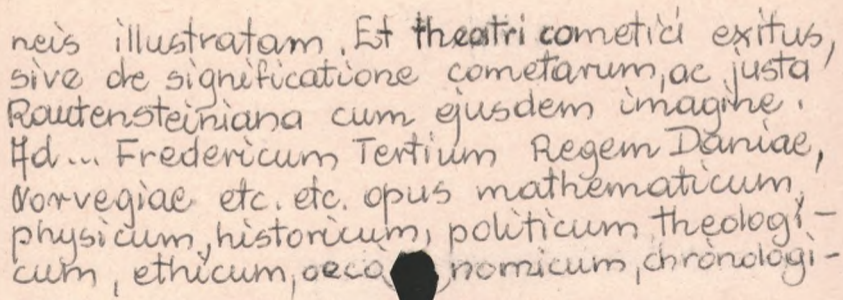 neis illustratam. Et theatri cometici exitus,
sive de significatione cometarum, ac justa
Rautensteiniana cum ejusdem imagine.
Ad... Fredericum Tertium Regem Daniae,
Norvegiae etc. etc. opus mathematicum,
physicum, historicum, politicum theologi-
cum, ethicum, oeco nomicum, chronologi-